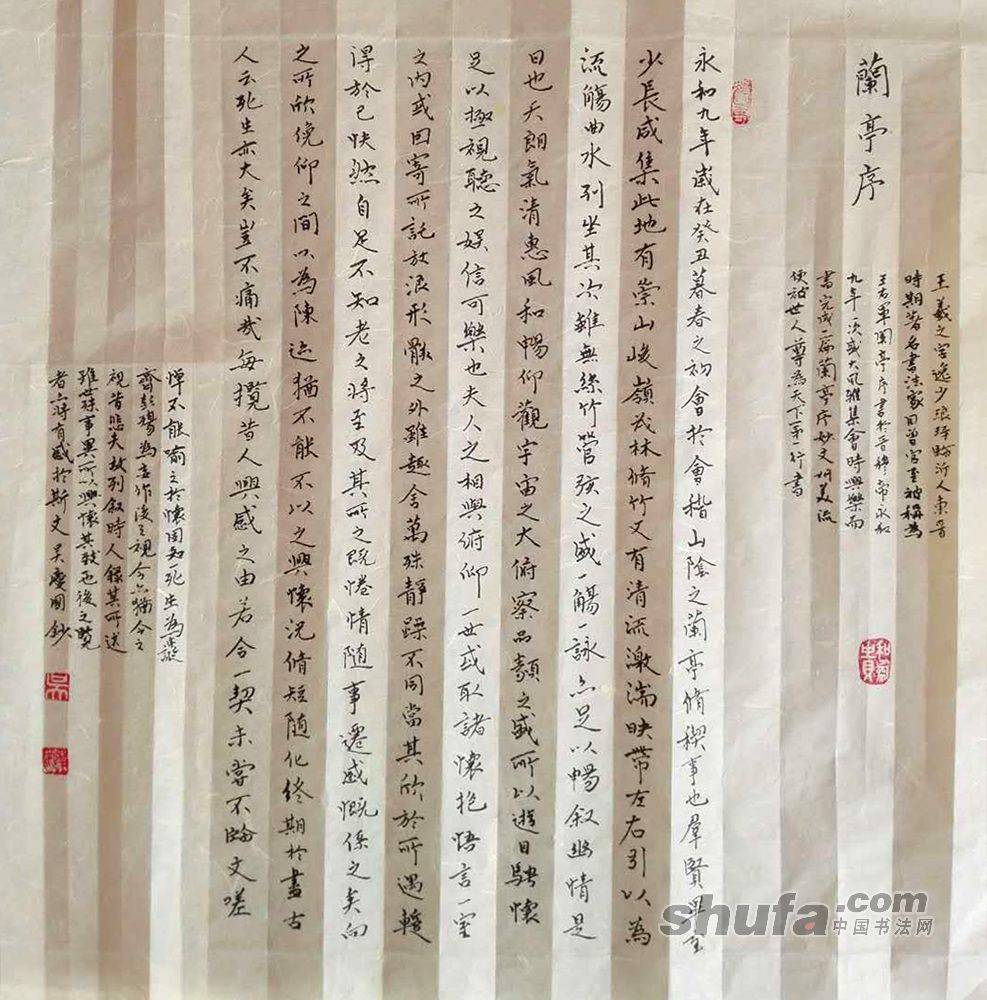 蘭亭序
王羲之字逸少琅琊臨沂人東晉
時期著名書法家因曾官至被稱為
王右軍蘭亭序書於晉穆帝永和
九年一次盛大風雅集會時興樂而
書完成一篇蘭亭序妙文以美流
便被世人尊為天下第一行書
永和九年歲在癸丑暮春之初會於會稽山陰之蘭亭脩稧事也羣賢畢至
少長咸集此地有崇山峻嶺茂林脩竹又有清流激湍映帶左右引以為
流觴曲水列坐其次雖無絲竹管弦之盛一觴一詠亦足以暢叙幽情是
日也天朗氣清惠風和暢仰觀宇宙之大俯察品類之盛所以遊目騁懷
足以極視聽之娱信可樂也夫人之相與俯仰一世或取諸懷抱悟言一室
之內或因寄所託放浪形骸之外雖趣舍萬殊靜躁不同當其欣於所遇輙
得於己快然自足不知老之將至及其所之既惓情隨事遷感慨係之矣向
之所欣俛仰之間以為陳迹猶不能不以之興懷況脩短隨化終期於盡古
人云死生亦大矣豈不痛哉每攬昔人興感之由若合一契未嘗不臨文嗟
悼不能喻之於懷固知一死生為虛誕
齊彭殤為妄作後之視今亦猶今之
視昔悲夫故列叙時人錄其所述
雖世殊事異所以興懷其致一也後之覽
者亦將有感於斯文吳慶國鈔
shufa.com
中国书法网